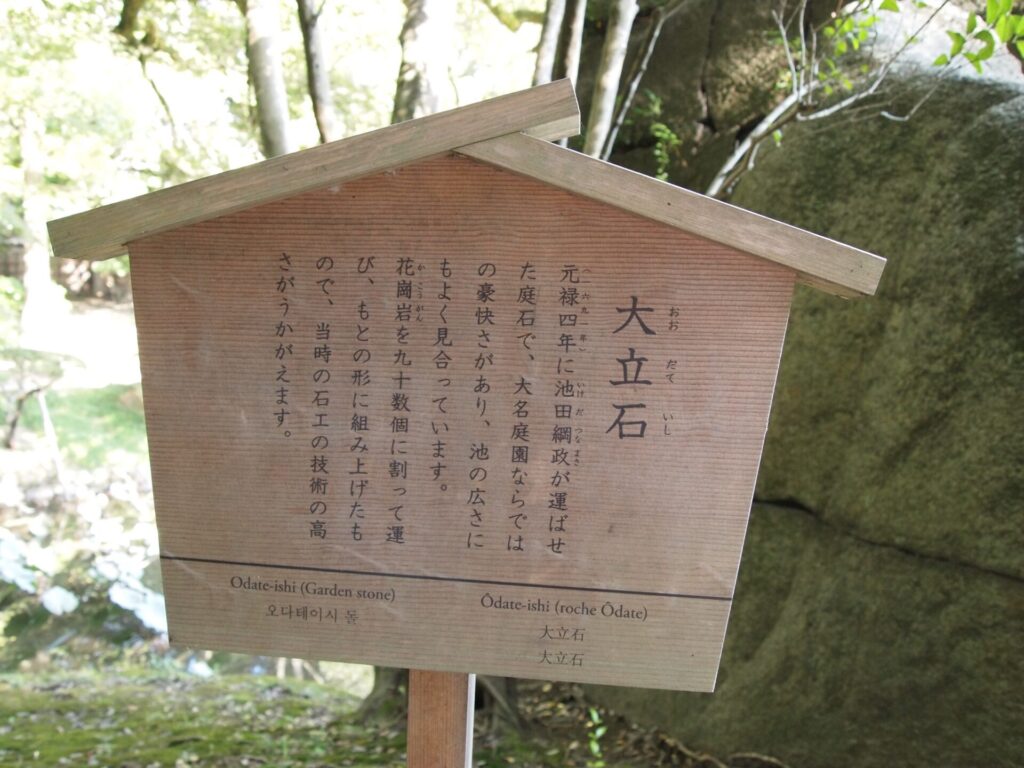 大立石
おおだていし
元禄四年に池田綱政が運ばせ
(一六九一年) いけだつなまさ
た庭石で、大名庭園ならでは
の豪快さがあり、池の広さに
もよく見合っています。
花崗岩を九十数個に割って運
かこうがん
び、もとの形に組み上げたも
ので、当時の石工の技術の高
さがうかがえます。
Odate-ishi (Garden stone)
오다테이시 돌
Ôdate-ishi (roche Ôdate)
大立石
大立石